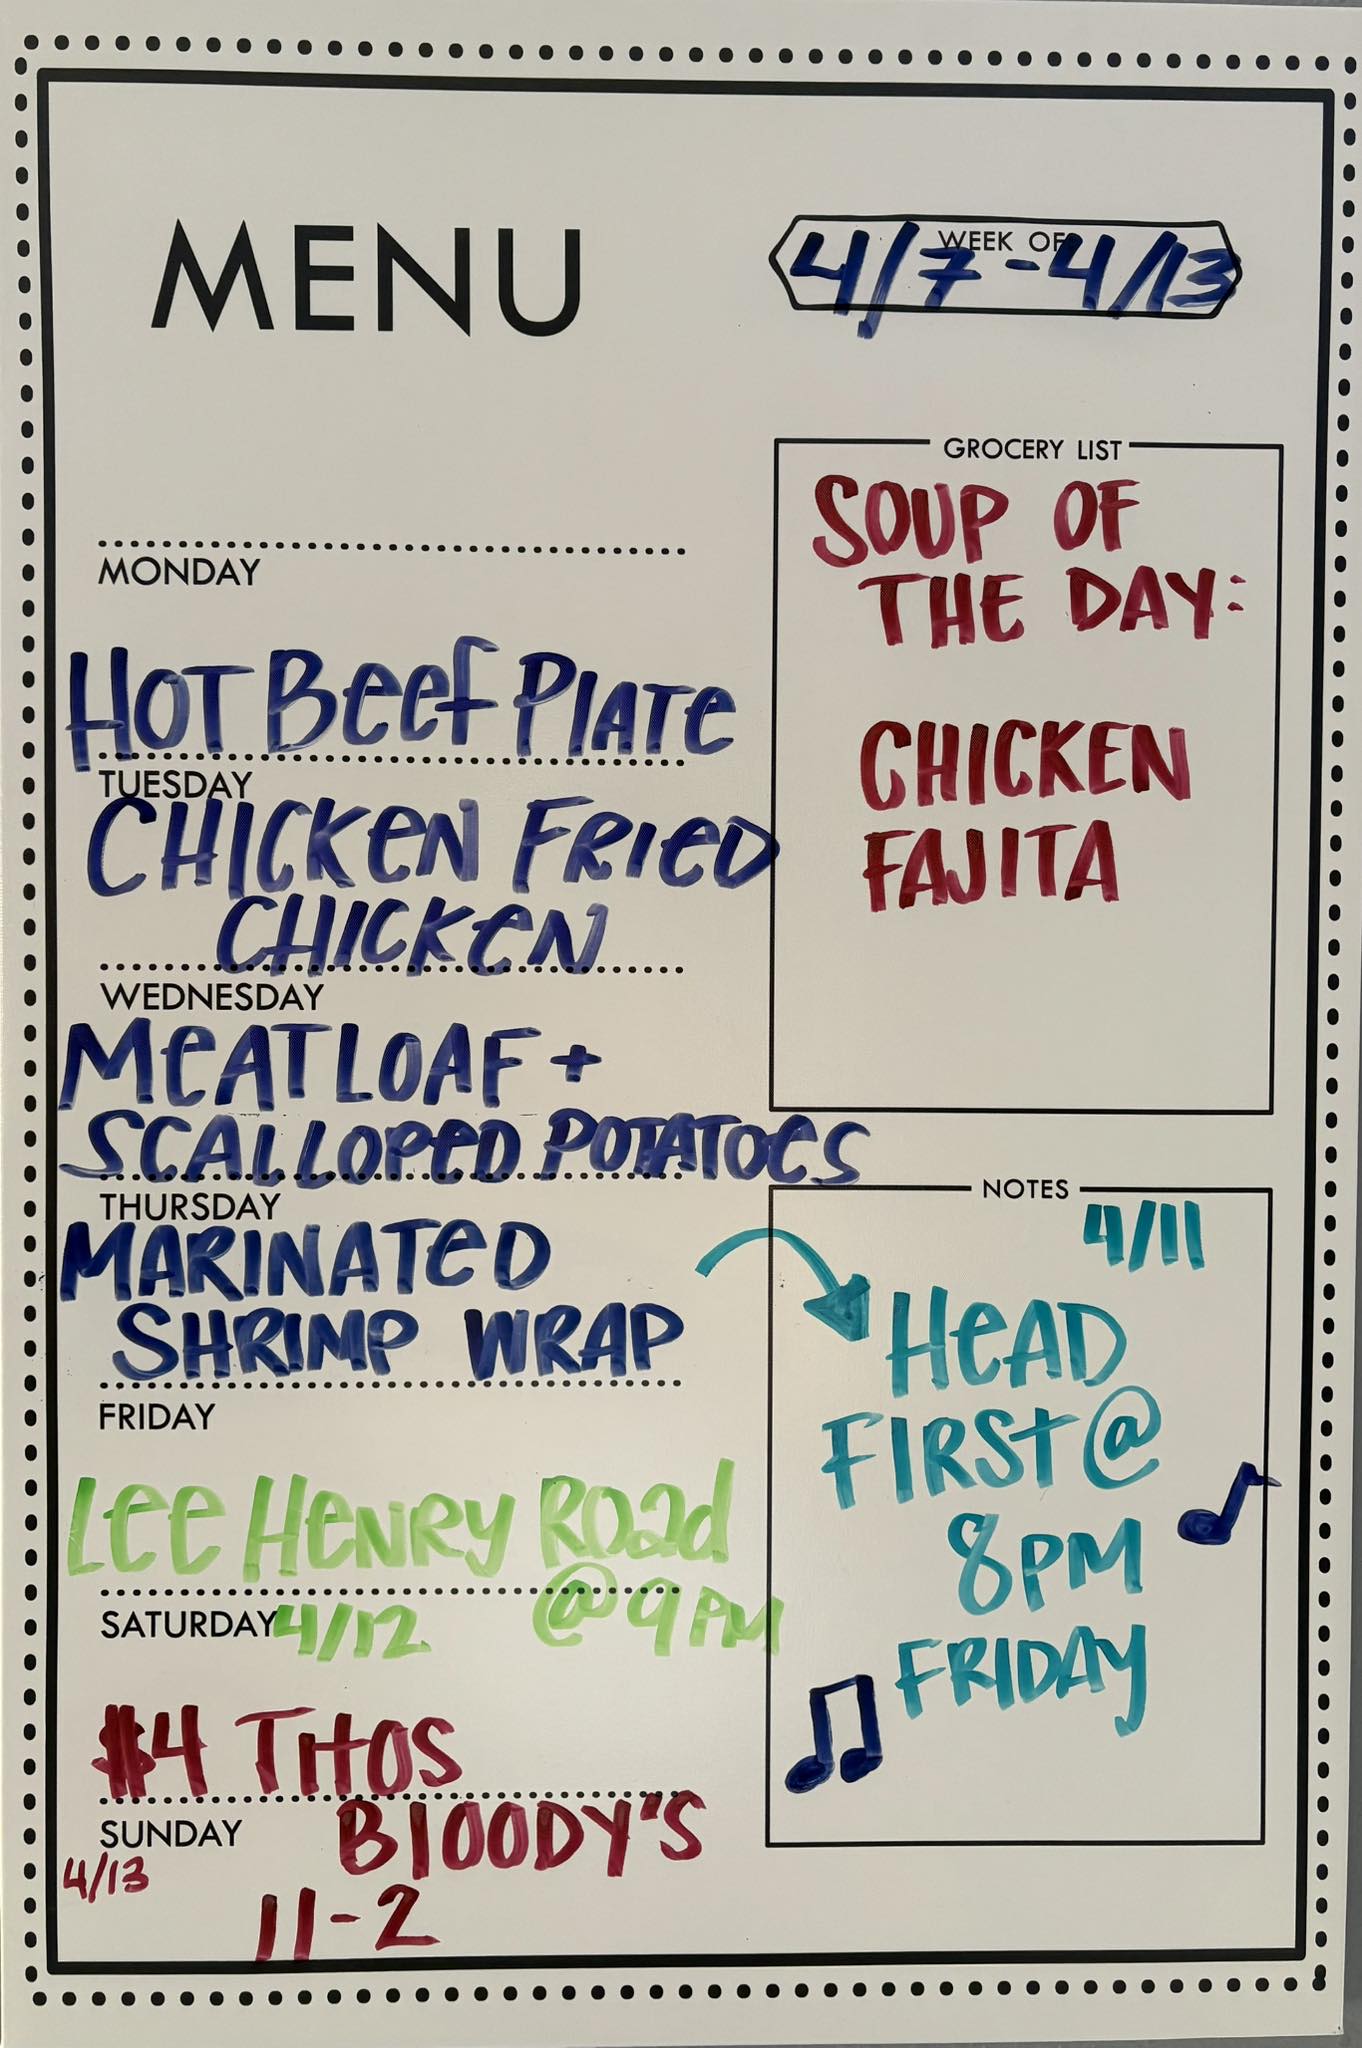 MENU
WEEK OF
4/7-4/13
MONDAY
HOT Beef PLATe
TUESDAY
CHICKeN FRIeD
CHICKeN
WEDNESDAY
MeATLOAF +
SCALLOPeD POTATOeS
THURSDAY
MARINATeD
SHRIMP WRAP
FRIDAY
Lee HeNRY ROad
@ 9 PM
SATURDAY 4/12
$4 THOS
BLOODY"S
SUNDAY
4/13
11-2
GROCERY LIST
SOUP OF
THE DAY:
CHICKEN
FAJITA
NOTES
4/11
HeAD
FIRSt @
8PM
FRIDAY